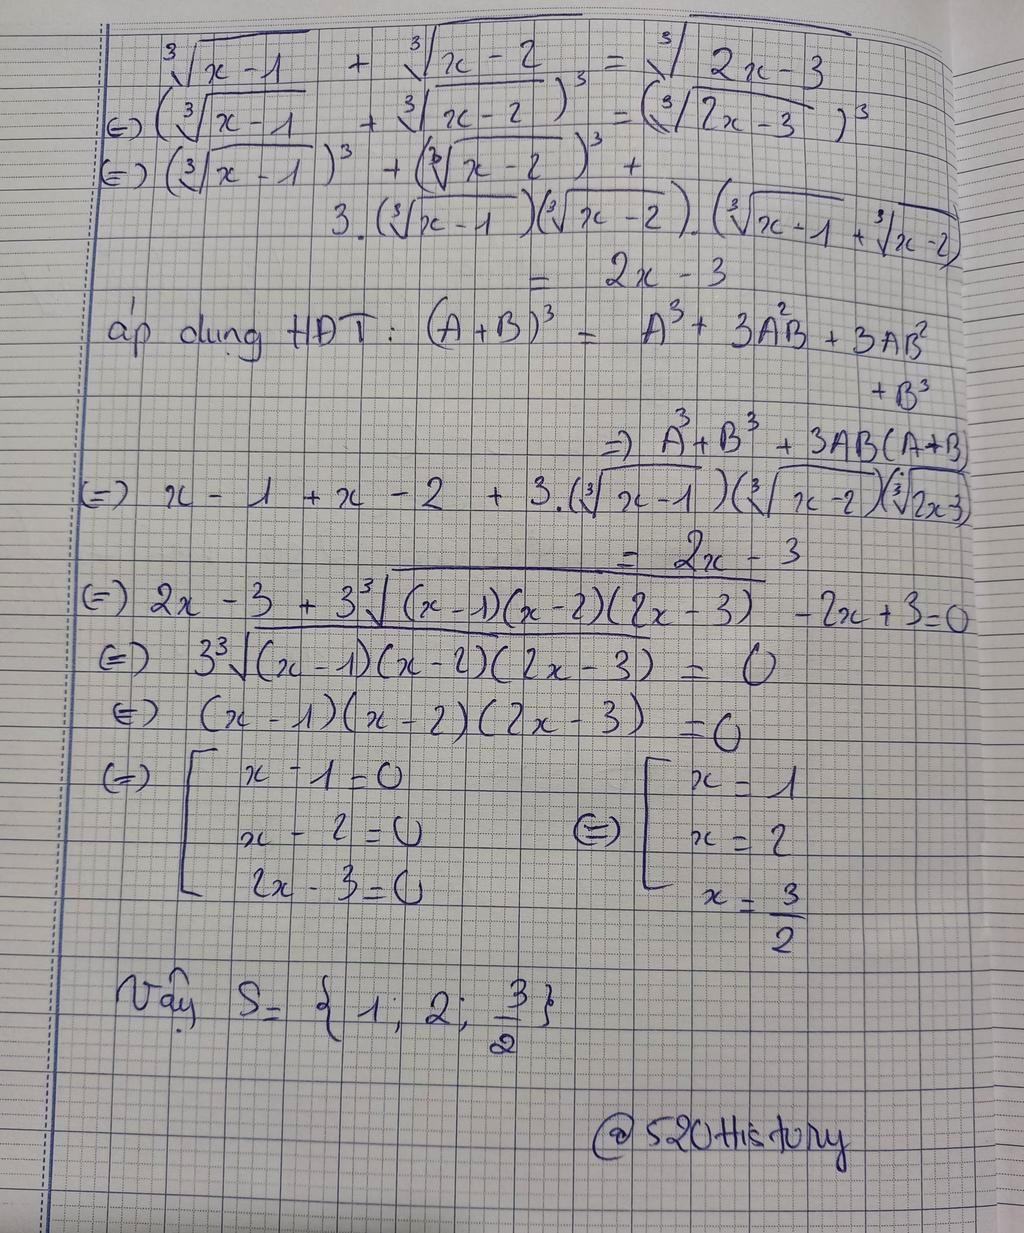 ∛(x - 1) + ∛(x - 2) = ∛(2x - 3)
(=) (∛(x - 1) + ∛(x - 2))³ = (∛(2x - 3))³
(=) (∛(x - 1))³ + (∛(x - 2))³ +
3.(∛(x - 1))(∛(x - 2)).(∛(x - 1) + ∛(x - 2))
= 2x - 3
áp dụng HĐT: (A + B)³ = A³ + 3A²B + 3AB²
+ B³
=) A³ + B³ + 3AB(A+B)
(=) x - 1 + x - 2 + 3.(∛(x - 1))(∛(x - 2))(∛(2x-3))
= 2x - 3
(=) 2x - 3 + 3∛((x - 1)(x - 2)(2x - 3)) - 2x + 3 = 0
(=) 3∛((x - 1)(x - 2)(2x - 3)) = 0
(=) (x - 1)(x - 2)(2x - 3) = 0
(=) [ x - 1 = 0 [ x = 1
x - 2 = 0 (=) x = 2
2x - 3 = 0 x = 3/2
Vậy S = {1; 2; 3/2}
@520History